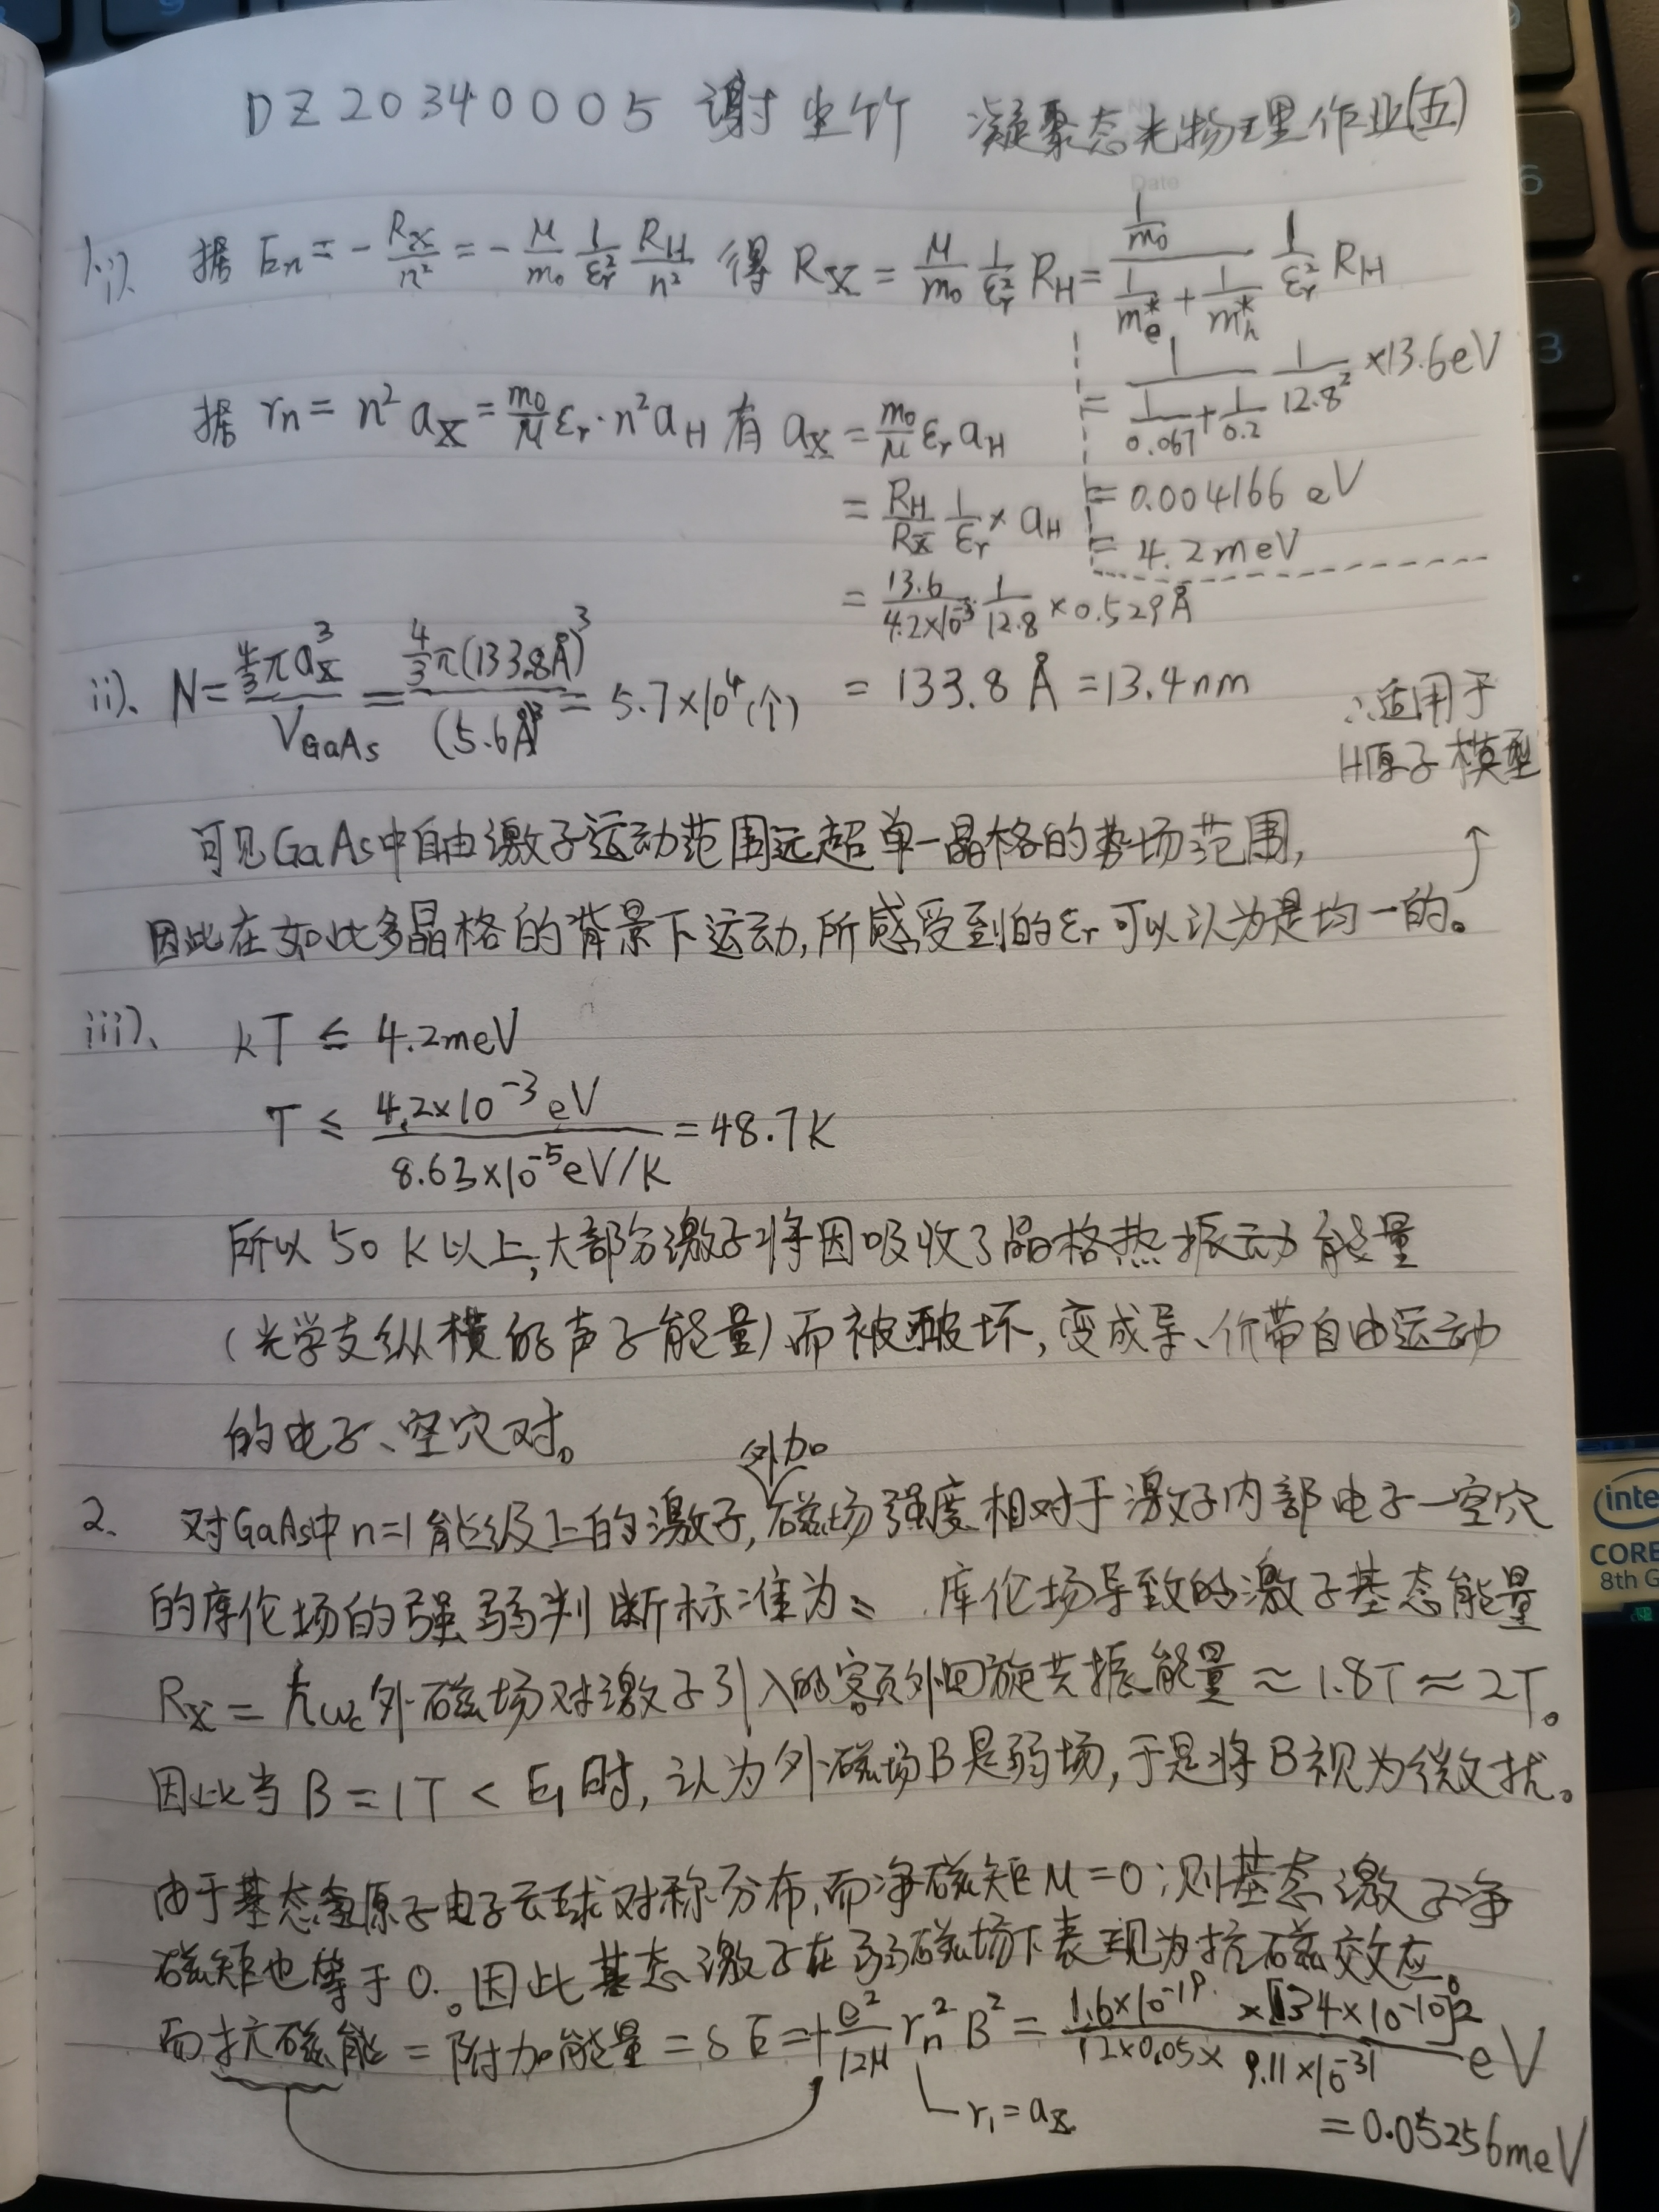 DZ20340005 谢尘竹 凝聚态光物理作业(五)
Date
1.i). 据 En = -Rx/n² = -μ/m₀ 1/εr² RH/n² 得 Rx = μ/m₀ 1/εr² RH = (1/m₀)/(1/me* + 1/mh*) 1/εr² RH
= 1/(1/0.067 + 1/0.2) 1/12.8² ×13.6eV
据 rn = n² ax = m₀/μ εr·n² aH 有 ax = m₀/μ εr aH
= RH/Rx 1/εr × aH
= 0.004166 eV
= 4.2meV
= 13.6/(4.2×10⁻³) · 1/12.8 × 0.529Å
= 133.8 Å = 13.4nm
ii). N = (4/3 π ax³)/VGaAs = (4/3 π(133.8Å)³)/(5.6Å)³ = 5.7×10⁴(个)
∴适用于
H原子模型
可见GaAs中自由激子运动范围远超单一晶格的势场范围,
因此在如此多晶格的背景下运动,所感受到的εr可以认为是均一的。
iii). kT ≤ 4.2meV
T ≤ (4.2×10⁻³ eV)/(8.63×10⁻⁵eV/K) = 48.7K
所以50K以上,大部分激子将因吸收了晶格热振动能量
(光学支纵横的声子能量)而被破坏,变成导、价带自由运动
的电子、空穴对。
外加
2. 对GaAs中n=1能级上的激子,磁场强度相对于激子内部电子-空穴
的库伦场的强弱判断标准为: 库伦场导致的激子基态能量
Rx = ħωc外磁场对激子引入的额外回旋共振能量≈1.8T≈2T。
因此当B=1T < E₁时,认为外磁场B是弱场,于是将B视为微扰。
由于基态氢原子电子云球对称分布,而净磁矩M=0;则基态激子净
磁矩也等于0。因此基态激子在弱磁场下表现为抗磁效应。
而抗磁能=附加能量=δE=+e²/12μ rn² B² = (1.6×10⁻¹⁹ ×[134×10⁻¹⁰]²)/(12×0.05×9.11×10⁻³¹) eV
r₁=ax
=0.05256meV
inte
CORE
8th G